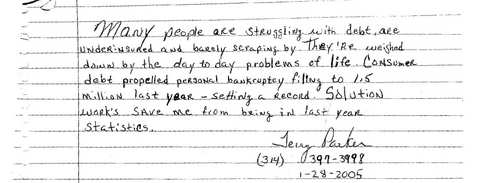 Many people are struggling with debt, are
underinsured and barely scraping by. They're weighed
down by the day to day problems of life. Consumer
debt propelled personal bankruptcy filing to 1.5
million last year - setting a record. Solution
work's save me from being in last year
statistics.
Terry Parker
(314) 397-3998
1-28-2005